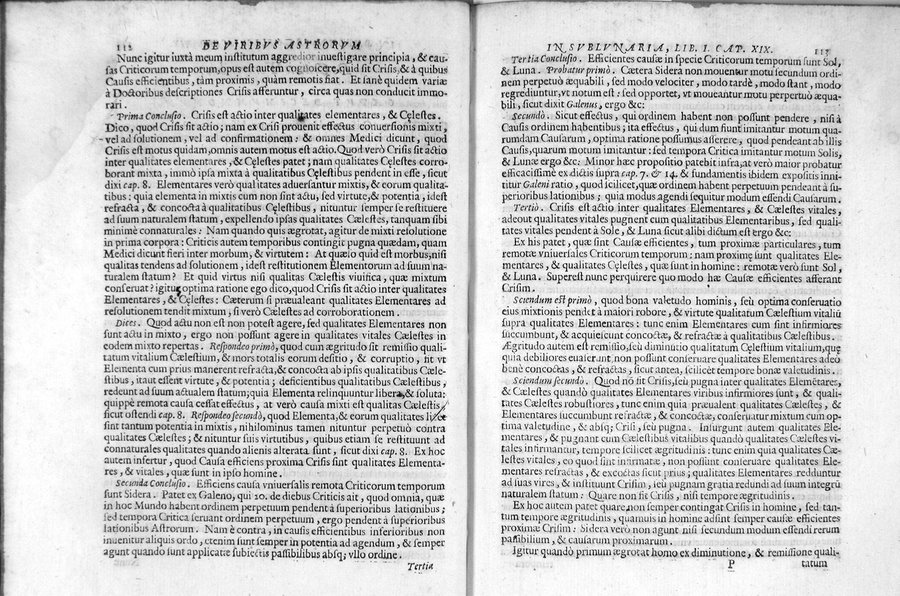 112 DE VIRIBVS ASTRORVM
Nunc igitur iuxtà meum institutum aggredior inuestigare principia, & cau-
sas Criticorum temporum, opus est autem cognoscere, quid sit Crisis, & à quibus
Causis efficientibus, tàm proximis, quàm remotis fiat. Et sanè quidem variæ
à Doctoribus descriptiones Crisis afferuntur, circa quas non conducit immo-
rari.
Prima Conclusio. Crisis est actio inter qualitates elementares, & Cęlestes.
Dico, quod Crisis sit actio; nam ex Crisi prouenit effectus conuersionis mixti,
vel ad solutionem, vel ad confirmationem: & omnes Medici dicunt, quod
Crisis est motus quidam, omnis autem motus est actio. Quod verò Crisis sit actio
inter qualitates elementares, & Cęlestes patet; nam qualitates Cęlestes corro-
borant mixta, immò ipsa mixta à qualitatibus Cęlestibus pendent in esse, sicut
dixi cap. 8. Elementares verò qualitates aduersantur mixtis, & eorum qualita-
tibus: quia elementa in mixtis cum non sint actu, sed virtute, & potentia, idest
refracta, & concocta à qualitatibus Cęlestibus, nituntur semper se restituere
ad suum naturalem statum, expellendo ipsas qualitates Cælestes, tanquam sibi
minimè connaturales: Nam quando quis ægrotat, agitur de mixti resolutione
in prima corpora: Criticis autem temporibus contingit pugna quædam, quam
Medici dicunt fieri inter morbum, & virtutem: At quæso quid est morbus, nisi
qualitas tendens ad solutionem, idest restitutionem Elementorum ad suum na-
turalem statum? Et quid virtus nisi qualitas Cælestis viuifica, quæ mixtum
conseruat? igitur optima ratione ego dico, quod Crisis sit actio inter qualitates
Elementares, & Cęlestes: Cæterum si præualeant qualitates Elementares ad
resolutionem tendit mixtum, si verò Cælestes ad corroborationem.
Dices. Quod actu non est non potest agere, sed qualitates Elementares non
sunt actu in mixto, ergo non possunt agere in qualitates vitales Cælestes in
eodem mixto repertas. Respondeo primò, quod cum ægritudo sit remissio quali-
tatum vitalium Cælestium, & mors totalis eorum desitio, & corruptio, fit vt
Elementa cum prius manerent refracta, & concocta ab ipsis qualitatibus Cæle-
stibus, itaut essent virtute, & potentia; deficientibus qualitatibus Cælestibus,
redeunt ad suum actualem statum; quia Elementa relinquuntur libera, & soluta:
quippè remota causa cessat effectus, at verò causa mixti est qualitas Cælestis,
sicut ostendi cap. 8. Respondeo secundò, quod Elementa, & eorum qualitates licet
sint tantum potentia in mixtis, nihilominus tamen nituntur perpetuò contra
qualitates Cælestes; & nituntur suis virtutibus, quibus etiam se restituunt ad
connaturales qualitates quando alienis alterata sunt, sicut dixi cap. 8. Ex hoc
autem infertur, quod Causa efficiens proxima Crisis sunt qualitates Elementa-
res, & vitales, quæ sunt in ipso homine.
Secunda Conclusio. Efficiens causa vniuersalis remota Criticorum temporum
sunt Sidera. Patet ex Galeno, qui 10. de diebus Criticis ait, quod omnia, quæ
in hoc Mundo habent ordinem perpetuum pendent à superioribus lationibus;
sed tempora Critica seruant ordinem perpetuum, ergo pendent à superioribus
lationibus Astrorum. Nam è contra, in causis efficientibus inferioribus non
inuenitur aliquis ordo, etenim sunt semper in potentia ad agendum, & semper
agunt quando sunt applicatæ subiectis passibilibus absq; vllo ordine.
Tertia
IN SVBLVNARIA, LIB. I. CAP. XIX. 113
Tertia Conclusio. Efficientes causæ in specie Criticorum temporum sunt Sol,
& Luna. Probatur primò. Cætera Sidera non mouentur motu secundum ordi-
nem perpetuò æquabili, sed modo velociter, modo tardè, modo stant, modo
regrediuntur, vt notum est: sed oportet, vt moueantur motu perpetuò æqua-
bili, sicut dixit Galenus, ergo &c:
Secundò. Sicut effectus, qui ordinem habent non possunt pendere, nisi à
Causis ordinem habentibus; ita effectus, qui dum fiunt imitantur motum qua-
rumdam Causarum, optima ratione possumus asserere, quod pendeant ab illis
Causis, quarum motum imitantur: sed tempora Critica imitantur motum Solis,
& Lunæ ergo &c: Minor hæc propositio patebit infra, at verò maior probatur
efficacissimè ex dictis supra cap. 7. & 14. & fundamentis ibidem expositis inni-
titur Galeni ratio, quod scilicet, quæ ordinem habent perpetuum pendeant à su-
perioribus lationibus; quia modus agendi sequitur modum essendi Causarum.
Tertiò. Crisis est actio inter qualitates Elementares, & Cælestes vitales,
adeout qualitates vitales pugnent cum qualitatibus Elementaribus, sed quali-
tates vitales pendent à Sole, & Luna sicut alibi dictum est ergo &c:
Ex his patet, quæ sint Causæ efficientes, tum proximæ particulares, tum
remotæ vniuersales Criticorum temporum: nam proximę sunt qualitates Ele-
mentares, & qualitates Cęlestes; quæ sunt in homine: remotæ verò sunt Sol,
& Luna. Superest nunc perquirere quo modo hæ Causæ efficientes afferant
Crisim.
Sciendum est primò, quod bona valetudo hominis, seù optima conseruatio
eius mixtionis pendet à maiori robore, & virtute qualitatum Cælestium vitaliū
supra qualitates Elementares: tunc enim Elementares cum sint infirmiores
succumbunt, & acquiescunt concoctæ, & refractæ à qualitatibus Cælestibus.
Ægritudo autem est remissio, seù diminutio qualitatum Cęlestium vitalium, quę
quia debiliores euaserunt, non possunt conseruare qualitates Elementares adeo
benè concoctas, & refractas, sicut antea, scilicèt tempore bonæ valetudinis.
Sciendum secundò. Quod nō fit Crisis, seù pugna inter qualitates Elemētares,
& Cælestes quandò qualitates Elementares viribus infirmiores sunt, & quali-
tates Cælestes robustiores, tunc enim quia præualent qualitates Cælestes
Elementares succumbunt refractæ, & concoctæ, conseruatur mixtum cum op-
tima valetudine, & absq; Crisi, seù pugna. Insurgunt autem qualitates Ele-
mentares, & pugnant cum Cælestibus vitalibus quandò qualitates Cælestes vi-
tales infirmantur, tempore scilicet ægritudinis: tunc enim quia qualitates Cæ-
lestes vitales, eo quod sint infirmatæ, non possunt conseruare qualitates Ele-
mentares refractas, & concoctas sicut prius; qualitates Elementares redduntur
ad suas vires, & instituunt Crisim, seù pugnam gratia redundi ad suum integrū
naturalem statum: Quare non fit Crisis, nisi tempore ægritudinis.
Ex hoc autem patet quare, non semper contingat Crisis in homine, sed tan-
tum tempore ægritudinis, quamuis in homine adsint semper causæ efficientes
proximæ Crisim: Sidera verò non agunt nisi secundum modum essendi rerum
passibilium, & causarum proximarum.
Igitur quandò primum ægrotat homo ex diminutione, & remissione quali-
P tatum